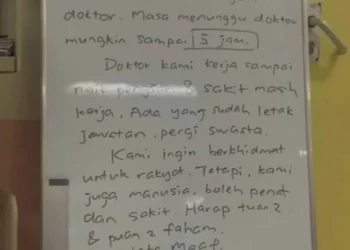 doktor. Masa menunggu doktor
mungkin sampai 5 jam.
Doktor kami kerja sampai
& sakit masih
kerja. Ada yang sudah letak
jawatan, pergi swasta.
Kami ingin berkhidmat
untuk rakyat. Tetapi, kami
juga manusia, boleh penat
dan sakit. Harap tuan2
& puan2 faham.
maaf.